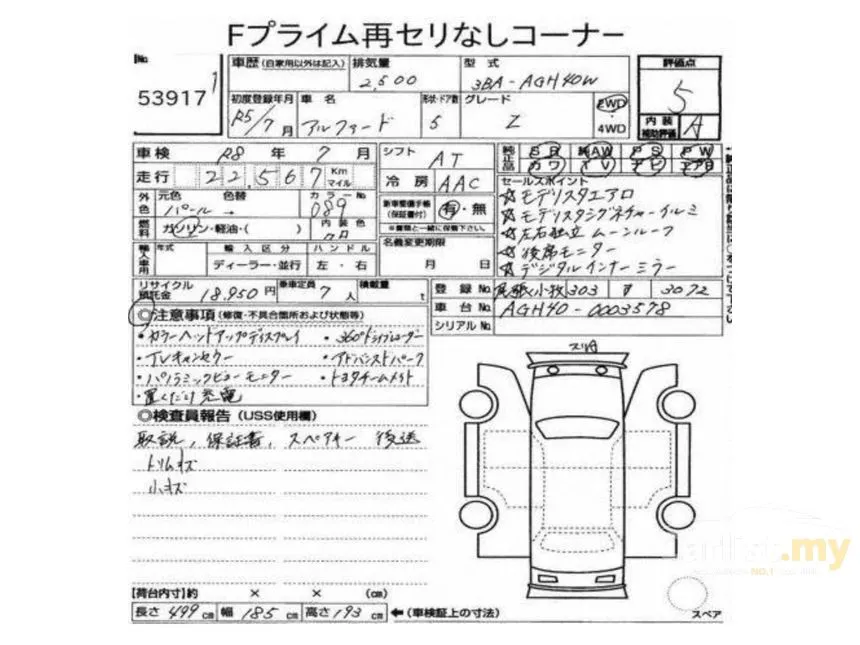 Fプライム再セリなしコーナー
No.
53917 1
車歴 (自家用以外は記入)
排気量
2,500
型式
3BA-AGH40W
評価点
5
初度登録年月
R5/7月
車名
アルファード
形状・ドア数
5
グレード
Z
2WD
4WD
内装
補助評価
A
車検 R8年 7月
シフト AT
純正品
SR 純AW PS PW
カワ TV ナビ エアB
走行 22,567 Km マイル
冷房 AAC
セールスポイント
☆モデリスタエアロ
☆モデリスタシグネチャーイルミ
☆左右独立 ムーンルーフ
☆後席モニター
☆デジタルインナーミラー
外色
元色 パール
色替 →
カラーNo. 089
新車整備手帳
(保証書付)
有・無
※書類と一緒に保管下さい。
燃料 ガソリン・軽油・( )
内装色
名義変更期限
月 日
輸入車用
年式
輸入区分
ハンドル
ディーラー・並行
左・右
リサイクル
預託金
18,950円
乗車定員 7人
積載量 t
登録No. 尾張小牧 303 3072
車台No. AGH40-0003578
シリアルNo.
◎注意事項 (修復・不具合箇所および状態等)
・カラーヘッドアップディスプレイ ・360°ドライブレコーダー
・JBL ・アドバンストパーク
・パノラミックビューモニター ・トヨタチームメイト
・置くだけ充電
◎検査員報告 (USS使用欄)
取説, 保証書, スペアキー 後送
トリムキズ
小キズ
【荷台内寸】約 × × (cm)
長さ 499cm 幅 185cm 高さ 193cm ←(車検証上の寸法)
スペア
carlist.my